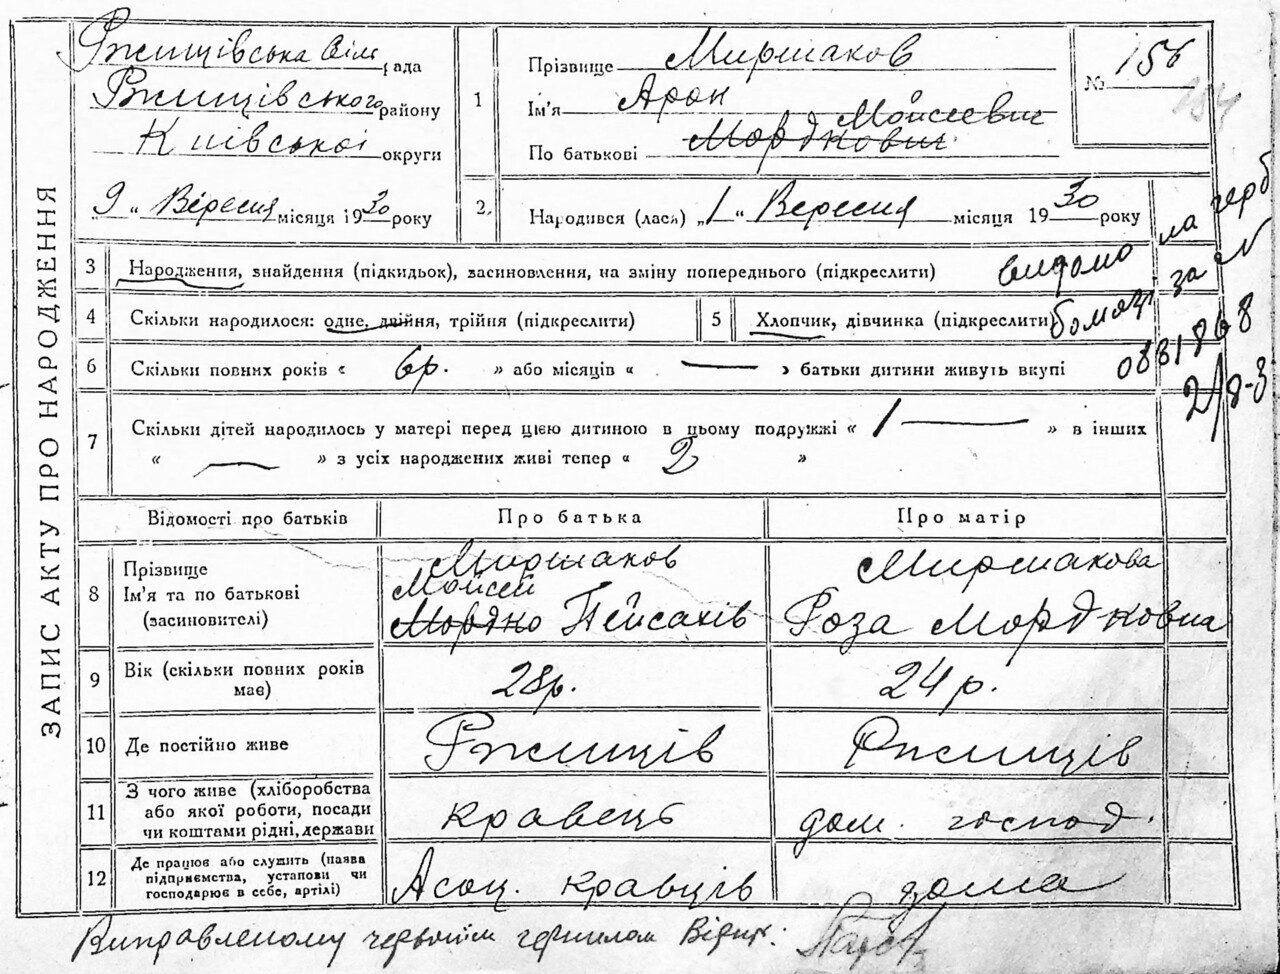 ЗАПИС АКТУ ПРО НАРОДЖЕННЯ
Ржищівська Сіль рада
Ржищівського району
Київської округи
„9“ Вересня місяця 1930 року
1
Прізвище Миршаков
Ім'я Арон
Мойсеевич
По батькові Мордкович
№ 156
184
2. Народився (лася) „1“ Вересня місяця 1930 року
3 Народження, знайдення (підкидьок), засиновлення, на зміну попереднього (підкреслити)
4 Скільки народилося: одне, двійня, трійня (підкреслити)
5 Хлопчик, дівчинка (підкреслити)
видано на герб
бомаз за №
0881868
2/8-3
6 Скільки повних років « 6р. » або місяців « — » батьки дитини живуть вкупі
7 Скільки дітей народилось у матері перед цією дитиною в цьому подружжі « 1 — » в інших
« — » з усіх народжених живі тепер « 2 »
Відомості про батьків Про батька Про матір
8 Прізвище
Ім'я та по батькові
(засиновителі)
Миршаков
Мойсей
Мордко Пейсахів
Миршакова
Роза Мордковна
9 Вік (скільки повних років
має)
28р. 24 р.
10 Де постійно живе Ржищів Ржищів
11 З чого живе (хліборобства
або якої роботи, посади
чи коштами рідні, держави
кравець дом. господ.
12 Де працює або служить (назва
підприємства, установи чи
господарює в себе, артілі)
Асоц. кравців дома
Виправленому червонім чернилом Вірит: